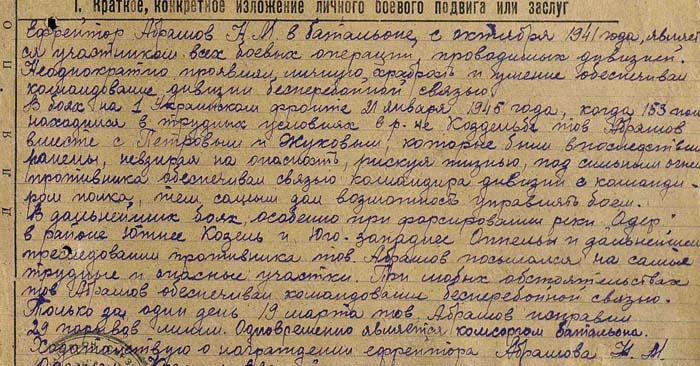 1. Краткое, конкретное изложение личного боевого подвига или заслуг
Ефрейтор Абрашов Н.М. в батальоне с октября 1941 года, являет-
ся участником всех боевых операций проводимых дивизией.
Неоднократно проявлял личную храбрость и умение обеспечивал
командование дивизии бесперебойной связью.
В боях на 1 Украинском фронте 21 января 1945 года, когда 153 полк
находился в трудных условиях в р-не тов Абрашов
вместе с Петровым и Жуковым, которые были впоследствии
ранены, невзирая на опасность, рискуя жизнью, под сильным огнем
противника обеспечивал связью командира дивизии с команди-
ром полка, тем самым дал возможность управлять боем.
В дальнейших боях, особенно при форсировании реки "Одер"
в районе южнее Козель и Юго-западнее Оппельн и дальнейшем
преследовании противника тов. Абрашов посылался на самые
трудные и опасные участки. При любых обстоятельствах
тов Абрашов обеспечивал командование бесперебойной связью.
Только за один день 19 марта тов. Абрашов исправил
29 порывов линии. Одновременно является комсоргом батальона.
Ходатайствую о награждении ефрейтора Абрашова Н. М.
ДЛЯ ПО